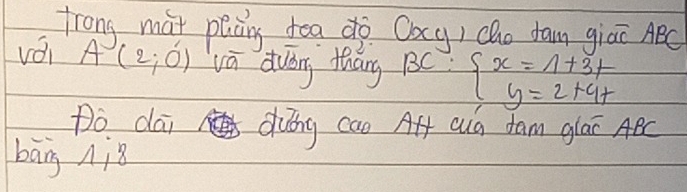 Trong mặt phẳng tọa độ Oxy, cho tam giác ABC
với A (2; 0) và đường thẳng BC: { x = 1+3t
y = 2+4t
Độ dài đường cao AH của tam giác ABC
bằng 1,8